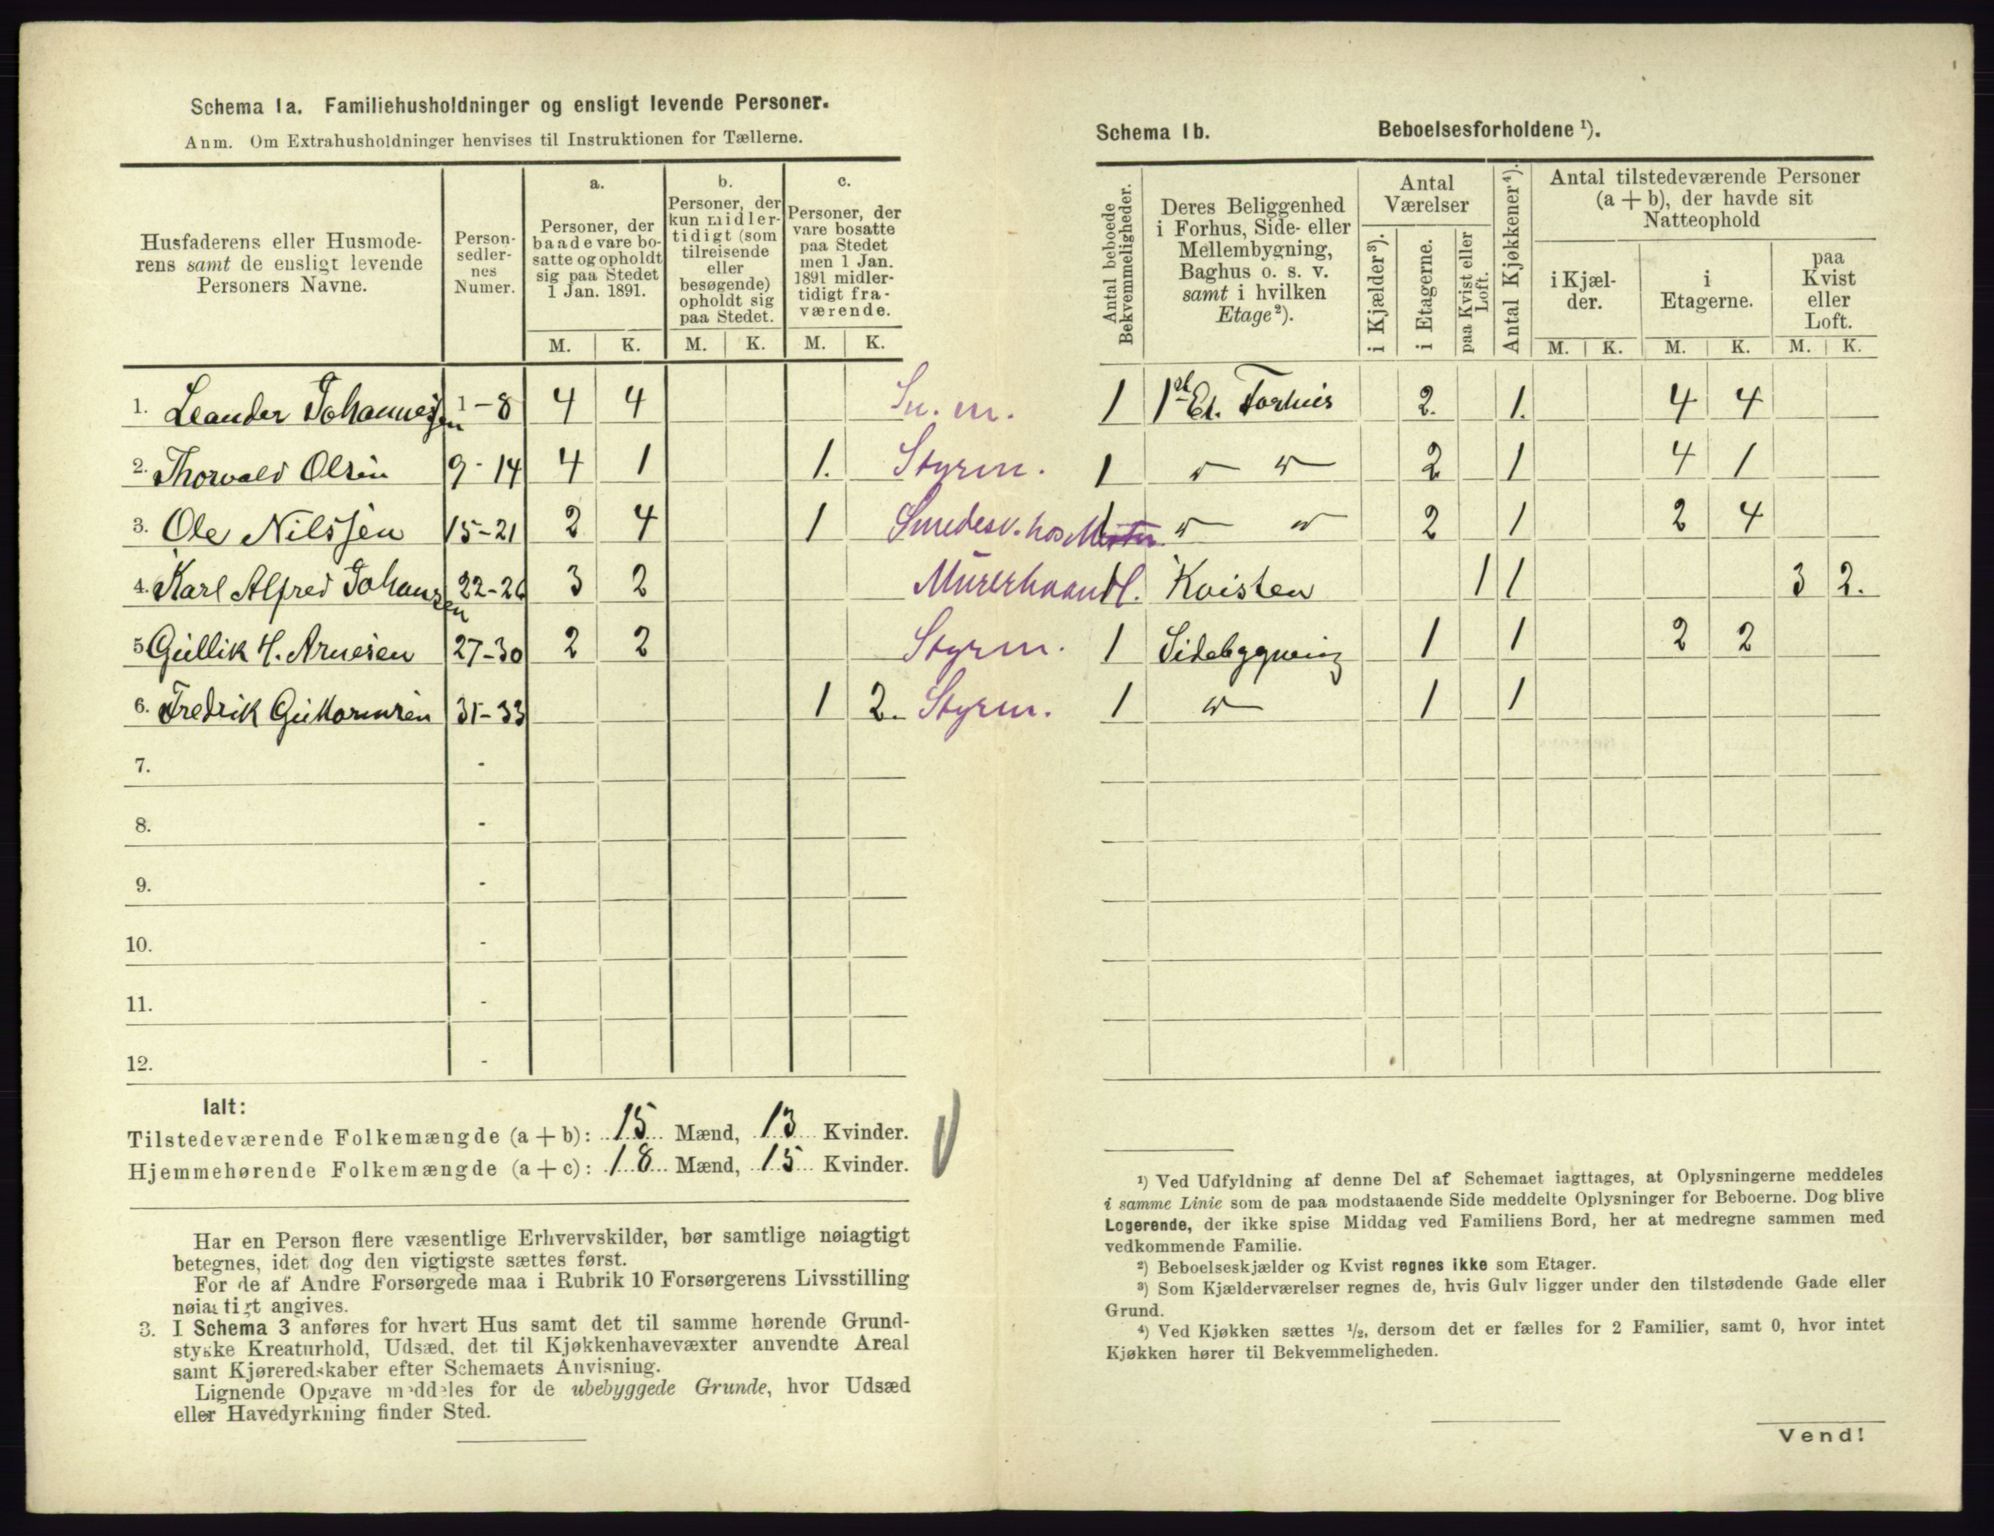 Schema 1a. Familiehusholdninger og ensligt levende Personer.
Anm. Om Extrahusholdninger henvises til Instruktionen for Tællerne.
Husfaderens eller Husmode-
rens samt de ensligt levende
Personers Navne.
Person-
sedler-
nes
Numer.
a.
Personer, der
baade vare bo-
satte og opholdt
sig paa Stedet
1 Jan. 1891.
b.
Personer, der
kun midler-
tidigt (som
tilreisende
eller
besøgende)
opholdt sig
paa Stedet.
c.
Personer, der
vare bosatte
paa Stedet
men 1 Jan.
1891 midler-
tidigt fra-
værende.
M. K. M. K. M. K.
1. Leander Johannessen 1-8 4 4 Sn. m.
2. Thorvald Olsen 9-14 4 1 1. Styrm.
3. Ole Nilssen 15-21 2 4 1 Smedesv. hos Mester
4. Karl Alfred Johansen 22-26 3 2 Murerhaandl.
5 Gullik H. Arnesen 27-30 2 2 Styrm.
6. Fredrik Guttormsen 31-33 1 2. Styrm.
7. -
8. -
9. -
10. -
11. -
12. -
Ialt:
Tilstedeværende Folkemængde (a + b): 15 Mænd, 13 Kvinder.
Hjemmehørende Folkemængde (a + c): 18 Mænd, 15 Kvinder.
Har en Person flere væsentlige Erhvervskilder, bør samtlige nøiagtigt
betegnes, idet dog den vigtigste sættes først.
For de af Andre Forsørgede maa i Rubrik 10 Forsørgerens Livsstilling
nøiagtigt angives.
3. I Schema 3 anføres for hvert Hus samt det til samme hørende Grund-
stykke Kreaturhold, Udsæd, det til Kjøkkenhavevæxter anvendte Areal
samt Kjøreredskaber efter Schemaets Anvisning.
Lignende Opgave meddeles for de ubebyggede Grunde, hvor Udsæd
eller Havedyrkning finder Sted.
Schema 1b. Beboelsesforholdene ¹).
Antal beboede
Bekvemmeligheder.
Deres Beliggenhed
i Forhus, Side- eller
Mellembygning,
Baghus o. s. v.
samt i hvilken
Etage²).
Antal
Værelser
i Kjælder³).
i Etagerne.
paa Kvist eller
Loft.
Antal Kjøkkener⁴).
Antal tilstedeværende Personer
(a + b), der havde sit
Natteophold
i Kjæl-
der.
i
Etagerne.
paa
Kvist
eller
Loft.
M. K. M. K. M. K.
1 1ste Et. Forhus 2. 1. 4 4
1 " " 2 1 4 1
1 " " 2 1 2 4
1 Kvisten 1 1 3 2.
1 Sidebygning 1 1 2 2
1 " 1 1
¹) Ved Udfyldning af denne Del af Schemaet iagttages, at Oplysningerne meddeles
i samme Linie som de paa modstaaende Side meddelte Oplysninger for Beboerne. Dog blive
Logerende, der ikke spise Middag ved Familiens Bord, her at medregne sammen med
vedkommende Familie.
²) Beboelseskjælder og Kvist regnes ikke som Etager.
³) Som Kjælderværelser regnes de, hvis Gulv ligger under den tilstødende Gade eller
Grund.
⁴) Ved Kjøkken sættes ½, dersom det er fælles for 2 Familier, samt 0, hvor intet
Kjøkken hører til Bekvemmeligheden.
Vend!